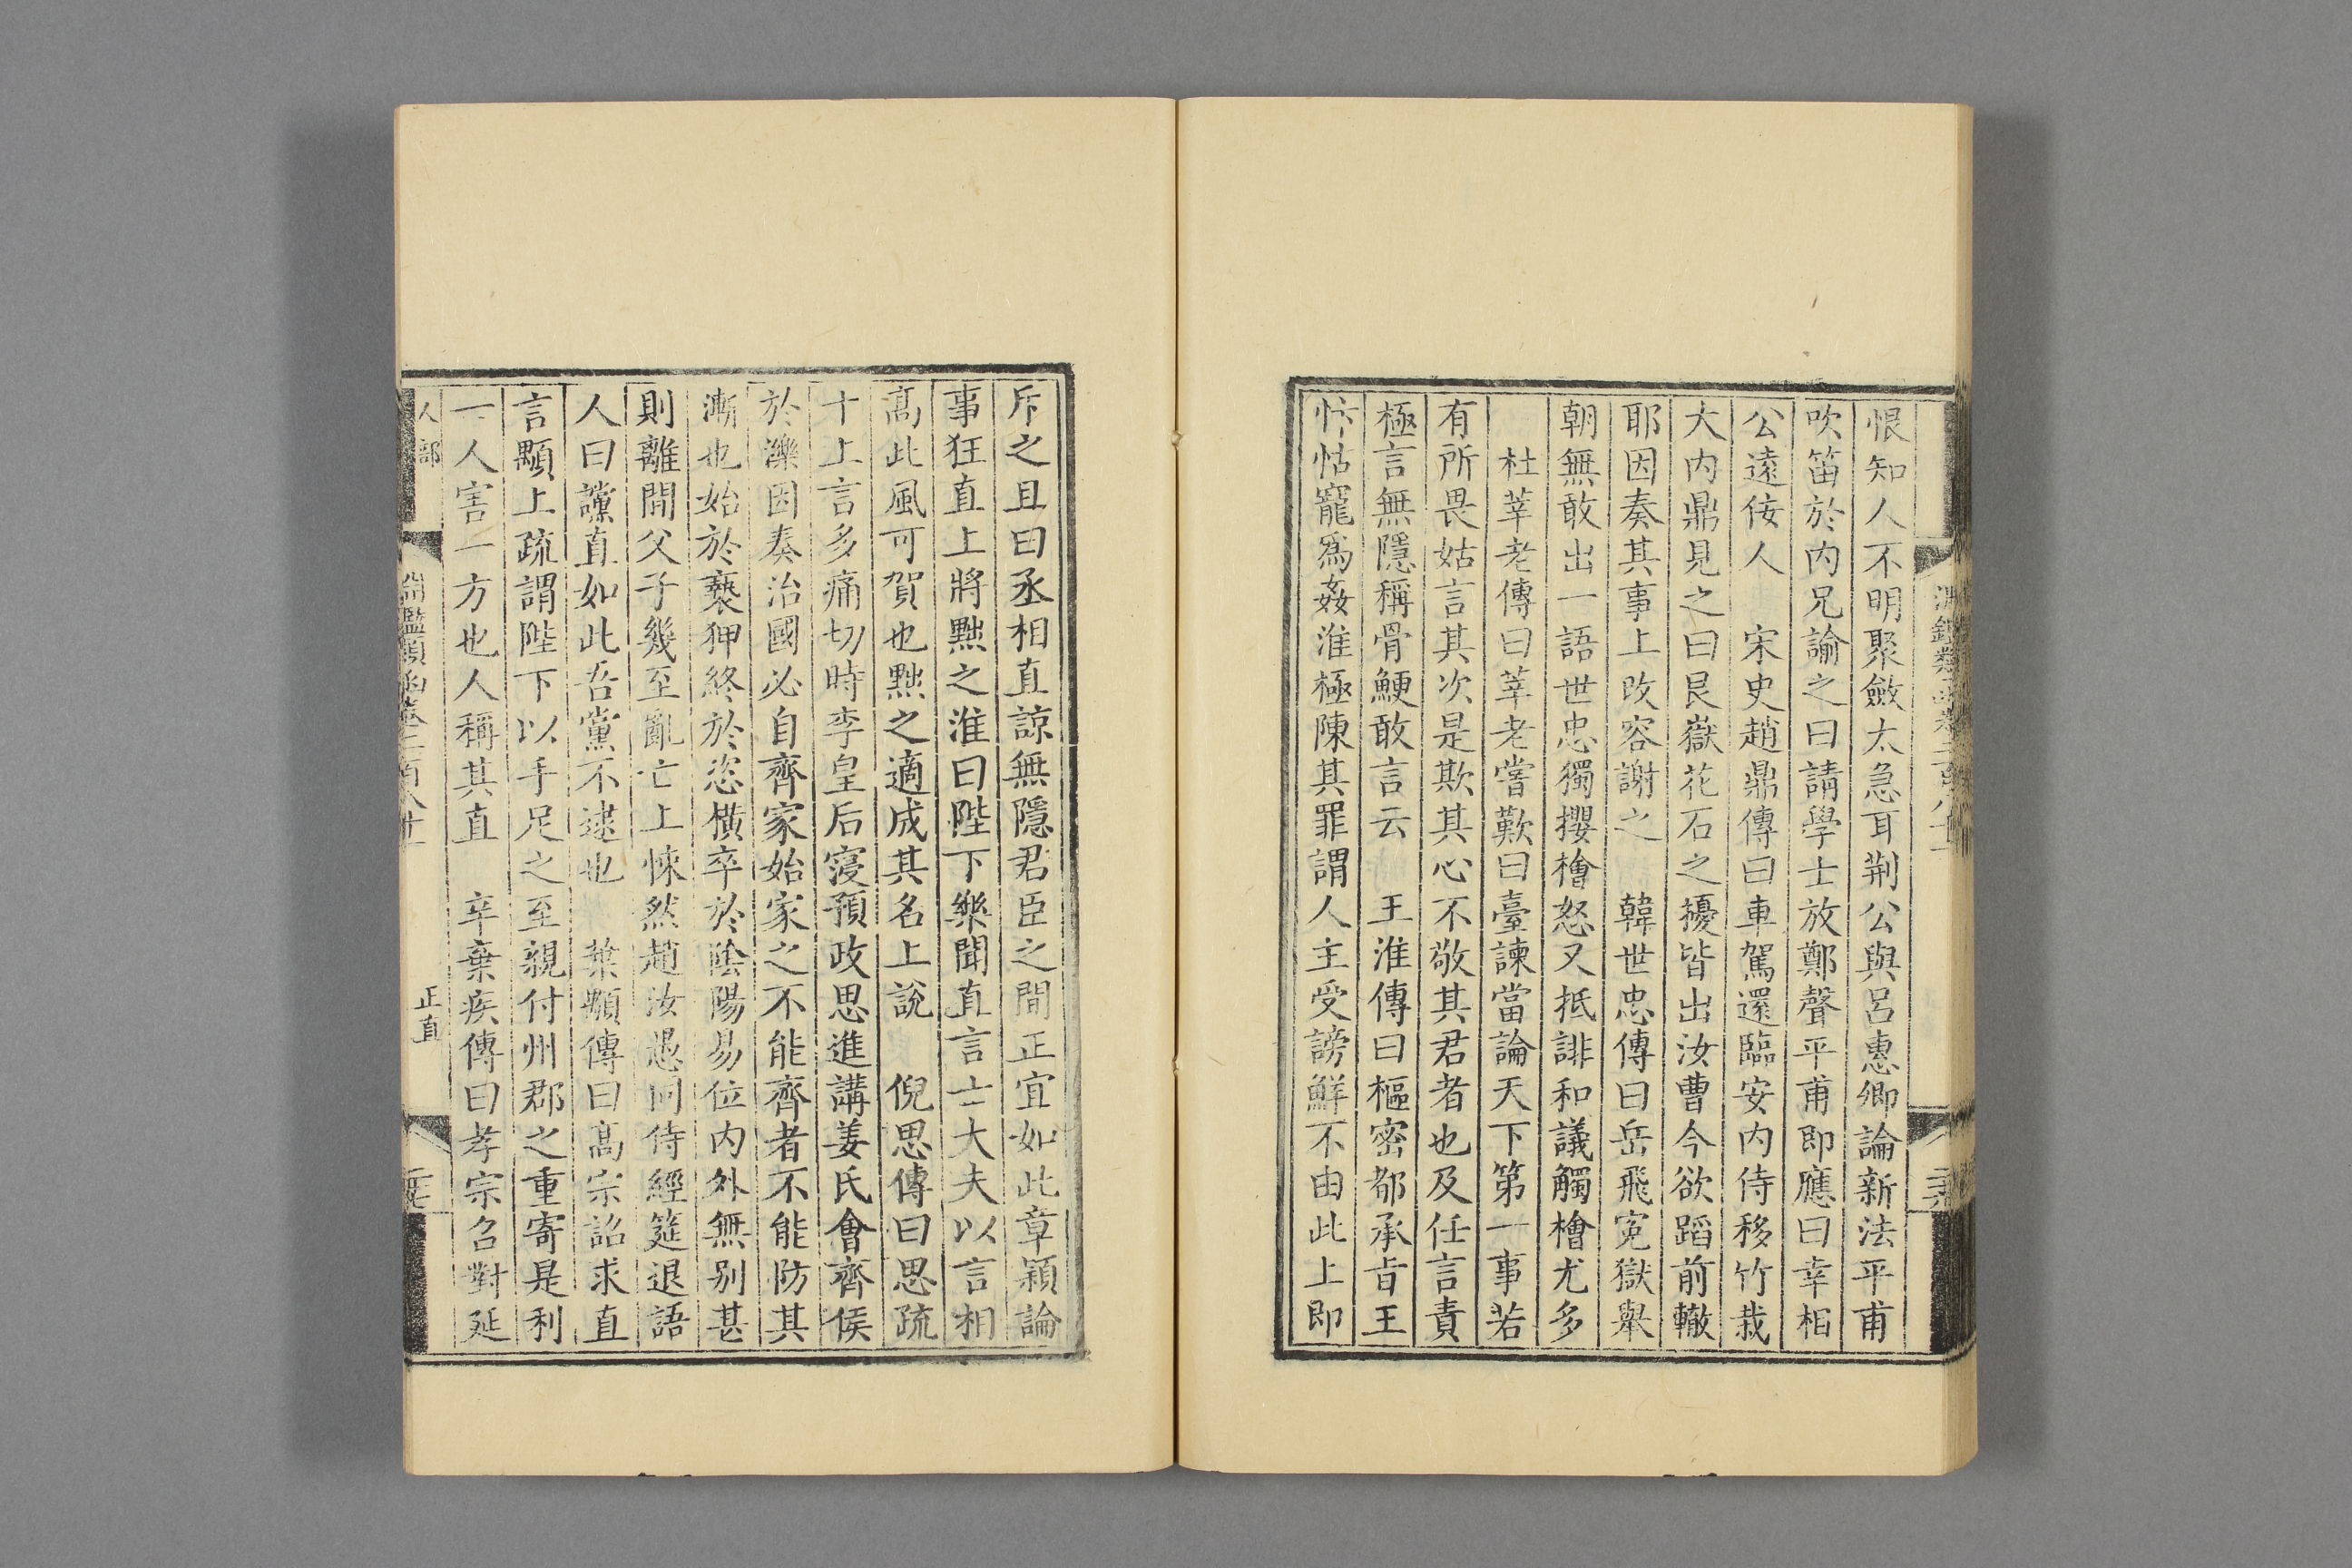 恨知人不明聚斂太急耳荆公與呂惠卿論新法平甫
吹笛於内兄諭之曰請學士放鄭聲平甫即應曰幸相
公遠佞人　宋史趙鼎傳曰車駕還臨安内侍移竹栽
大内鼎見之曰艮嶽花石之擾皆出汝曹今欲蹈前轍
耶因奏其事上改容謝之　韓世忠傳曰岳飛寃獄舉
朝無敢出一語世忠獨攖檜怒又抵誹和議觸檜尤多
杜莘老傳曰莘老嘗歎曰臺諫當論天下第一事若
有所畏姑言其次是欺其心不敬其君者也及任言責
極言無隱稱骨鯁敢言云　王淮傳曰樞密都承旨王
忭怙寵爲姦淮極陳其罪謂人主受謗鮮不由此上即
斥之且曰丞相直諒無隱君臣之間正宜如此章穎論
事狂直上將黜之淮曰陛下樂聞直言士大夫以言相
高此風可賀也黜之適成其名上說　倪思傳曰思疏
十上言多痛切時李皇后寖預政思進講姜氏會齊侯
於濼因奏治國必自齊家始家之不能齊者不能防其
漸也始於褻狎終於恣橫卒於陰陽易位内外無别甚
則離間父子幾至亂亡上悚然趙汝愚同侍經筵退語
人曰讜直如此吾黨不逮也　葉顒傳曰高宗詔求直
言顒上疏謂陛下以手足之至親付州郡之重寄是利
一人害一方也人稱其直　辛棄疾傳曰孝宗召對延
人部
正直